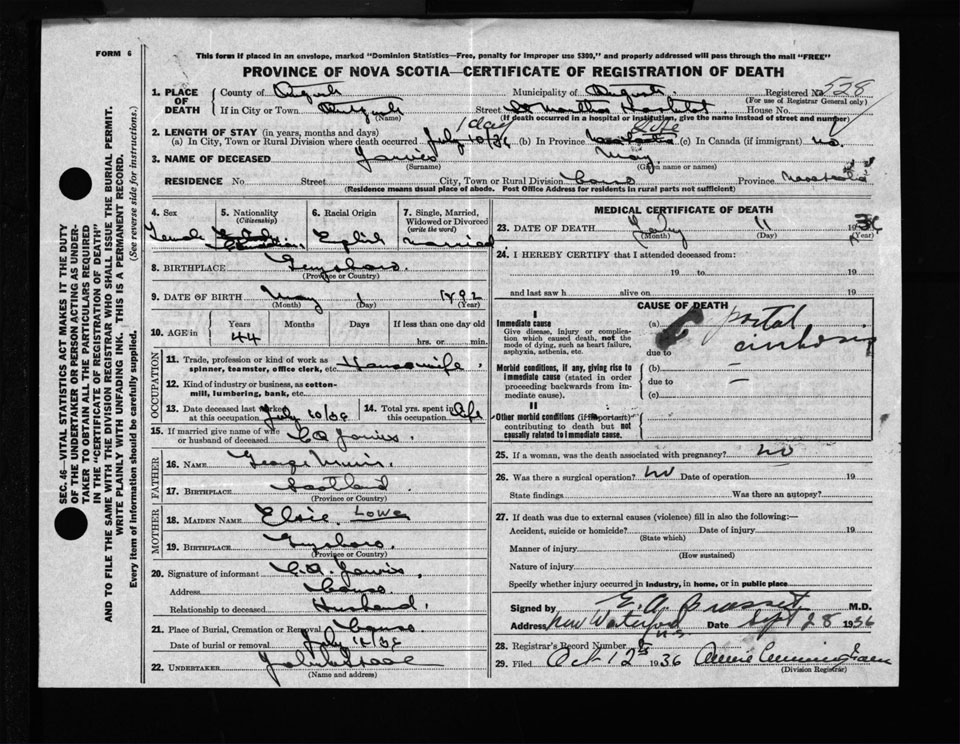 FORM 6
This form if placed in an envelope, marked "Dominion Statistics—Free, penalty for improper use $300," and properly addressed will pass through the mail "FREE"
PROVINCE OF NOVA SCOTIA—CERTIFICATE OF REGISTRATION OF DEATH
SEC. 46—VITAL STATISTICS ACT MAKES IT THE DUTY
OF THE UNDERTAKER OR PERSON ACTING AS UNDER-
TAKER TO OBTAIN ALL THE PARTICULARS REQUIRED
IN THE "CERTIFICATE OF REGISTRATION OF DEATH"
AND TO FILE THE SAME WITH THE DIVISION REGISTRAR WHO SHALL ISSUE THE BURIAL PERMIT.
WRITE PLAINLY WITH UNFADING INK. THIS IS A PERMANENT RECORD.
Every item of information should be carefully supplied. (See reverse side for instructions.)
1. PLACE OF DEATH
County of Municipality of Registered No. 528
(For use of Registrar General only)
If in City or Town Street St Martha's Hospital House No.
(Name) (If death occurred in a hospital or institution, give the name instead of street and number)
2. LENGTH OF STAY (in years, months and days) 1 day Life
(a) In City, Town or Rural Division where death occurred July 10/36 (b) In Province (c) In Canada (if immigrant) no.
3. NAME OF DECEASED May.
(Surname) (Given name or names)
RESIDENCE No Street City, Town or Rural Division Canso Province Nova Scotia
(Residence means usual place of abode. Post Office Address for residents in rural parts not sufficient)
4. Sex 5. Nationality (Citizenship) 6. Racial Origin 7. Single, Married, Widowed or Divorced (write the word)
Female Canadian English married
8. BIRTHPLACE Guysboro.
(Province or Country)
9. DATE OF BIRTH May 1 1892
(Month) (Day) (Year)
10. AGE in Years Months Days If less than one day old
44 hrs. or min.
OCCUPATION
11. Trade, profession or kind of work as spinner, teamster, office clerk, etc. Housewife.
12. Kind of industry or business, as cotton-mill, lumbering, bank, etc.
13. Date deceased last worked at this occupation July 10/36 14. Total yrs. spent in this occupation Life
15. If married give name of wife or husband of deceased
FATHER
16. NAME George
17. BIRTHPLACE Scotland
(Province or Country)
MOTHER
18. MAIDEN NAME Elsie
19. BIRTHPLACE Guysboro.
(Province or Country)
20. Signature of informant
Address Canso
Relationship to deceased Husband.
21. Place of Burial, Cremation or Removal Canso
Date of burial or removal July
22. UNDERTAKER
(Name and address)
MEDICAL CERTIFICATE OF DEATH
23. DATE OF DEATH July 11 1936
(Month) (Day) (Year)
24. I HEREBY CERTIFY that I attended deceased from:
19 to 19
and last saw h alive on 19
CAUSE OF DEATH
I
Immediate cause (a) portal
Give disease, injury or complication which caused death, not the mode of dying, such as heart failure, asphyxia, asthenia, etc. due to cirrhosis
Morbid conditions, if any, giving rise to immediate cause (stated in order proceeding backwards from immediate cause). (b) —
due to —
(c)
II
Other morbid conditions (if important) contributing to death but not causally related to immediate cause.
25. If a woman, was the death associated with pregnancy? no
26. Was there a surgical operation? no Date of operation 19
State findings Was there an autopsy?
27. If death was due to external causes (violence) fill in also the following:—
Accident, suicide or homicide? Date of injury 19
(State which)
Manner of injury
(How sustained)
Nature of injury
Specify whether injury occurred in industry, in home, or in public place
Signed by M.D.
Address New Waterford N.S Date Sept 28 1936
28. Registrar's Record Number
29. Filed Oct 12th 1936 Annie Cunningham
(Division Registrar)